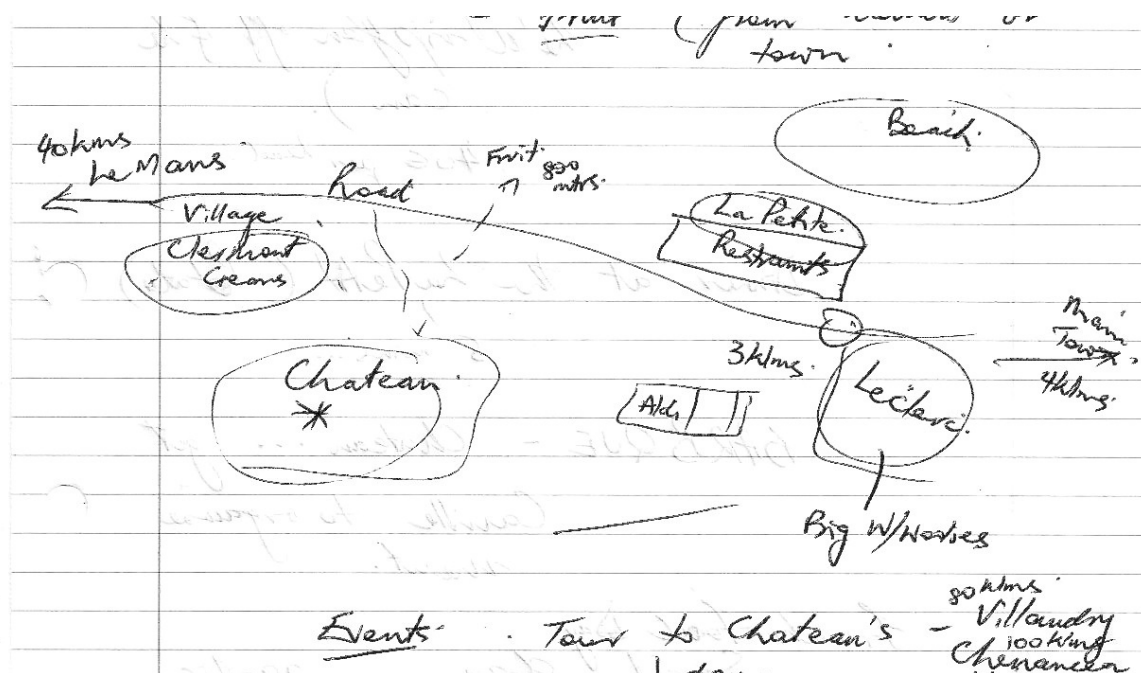 Fruit (from
town.
Beach.
40kms
Le Mans
Fruit.
800
mtrs.
Road
Village
Clermont
Creans
La Petite.
Restraunts
Main
Town
4klms.
3klms.
Chateau.
Aldi
Leclerc.
Big W/Wories
Events. Tour to Chateau's -
80klms.
Villandry
100klms
Chenancea